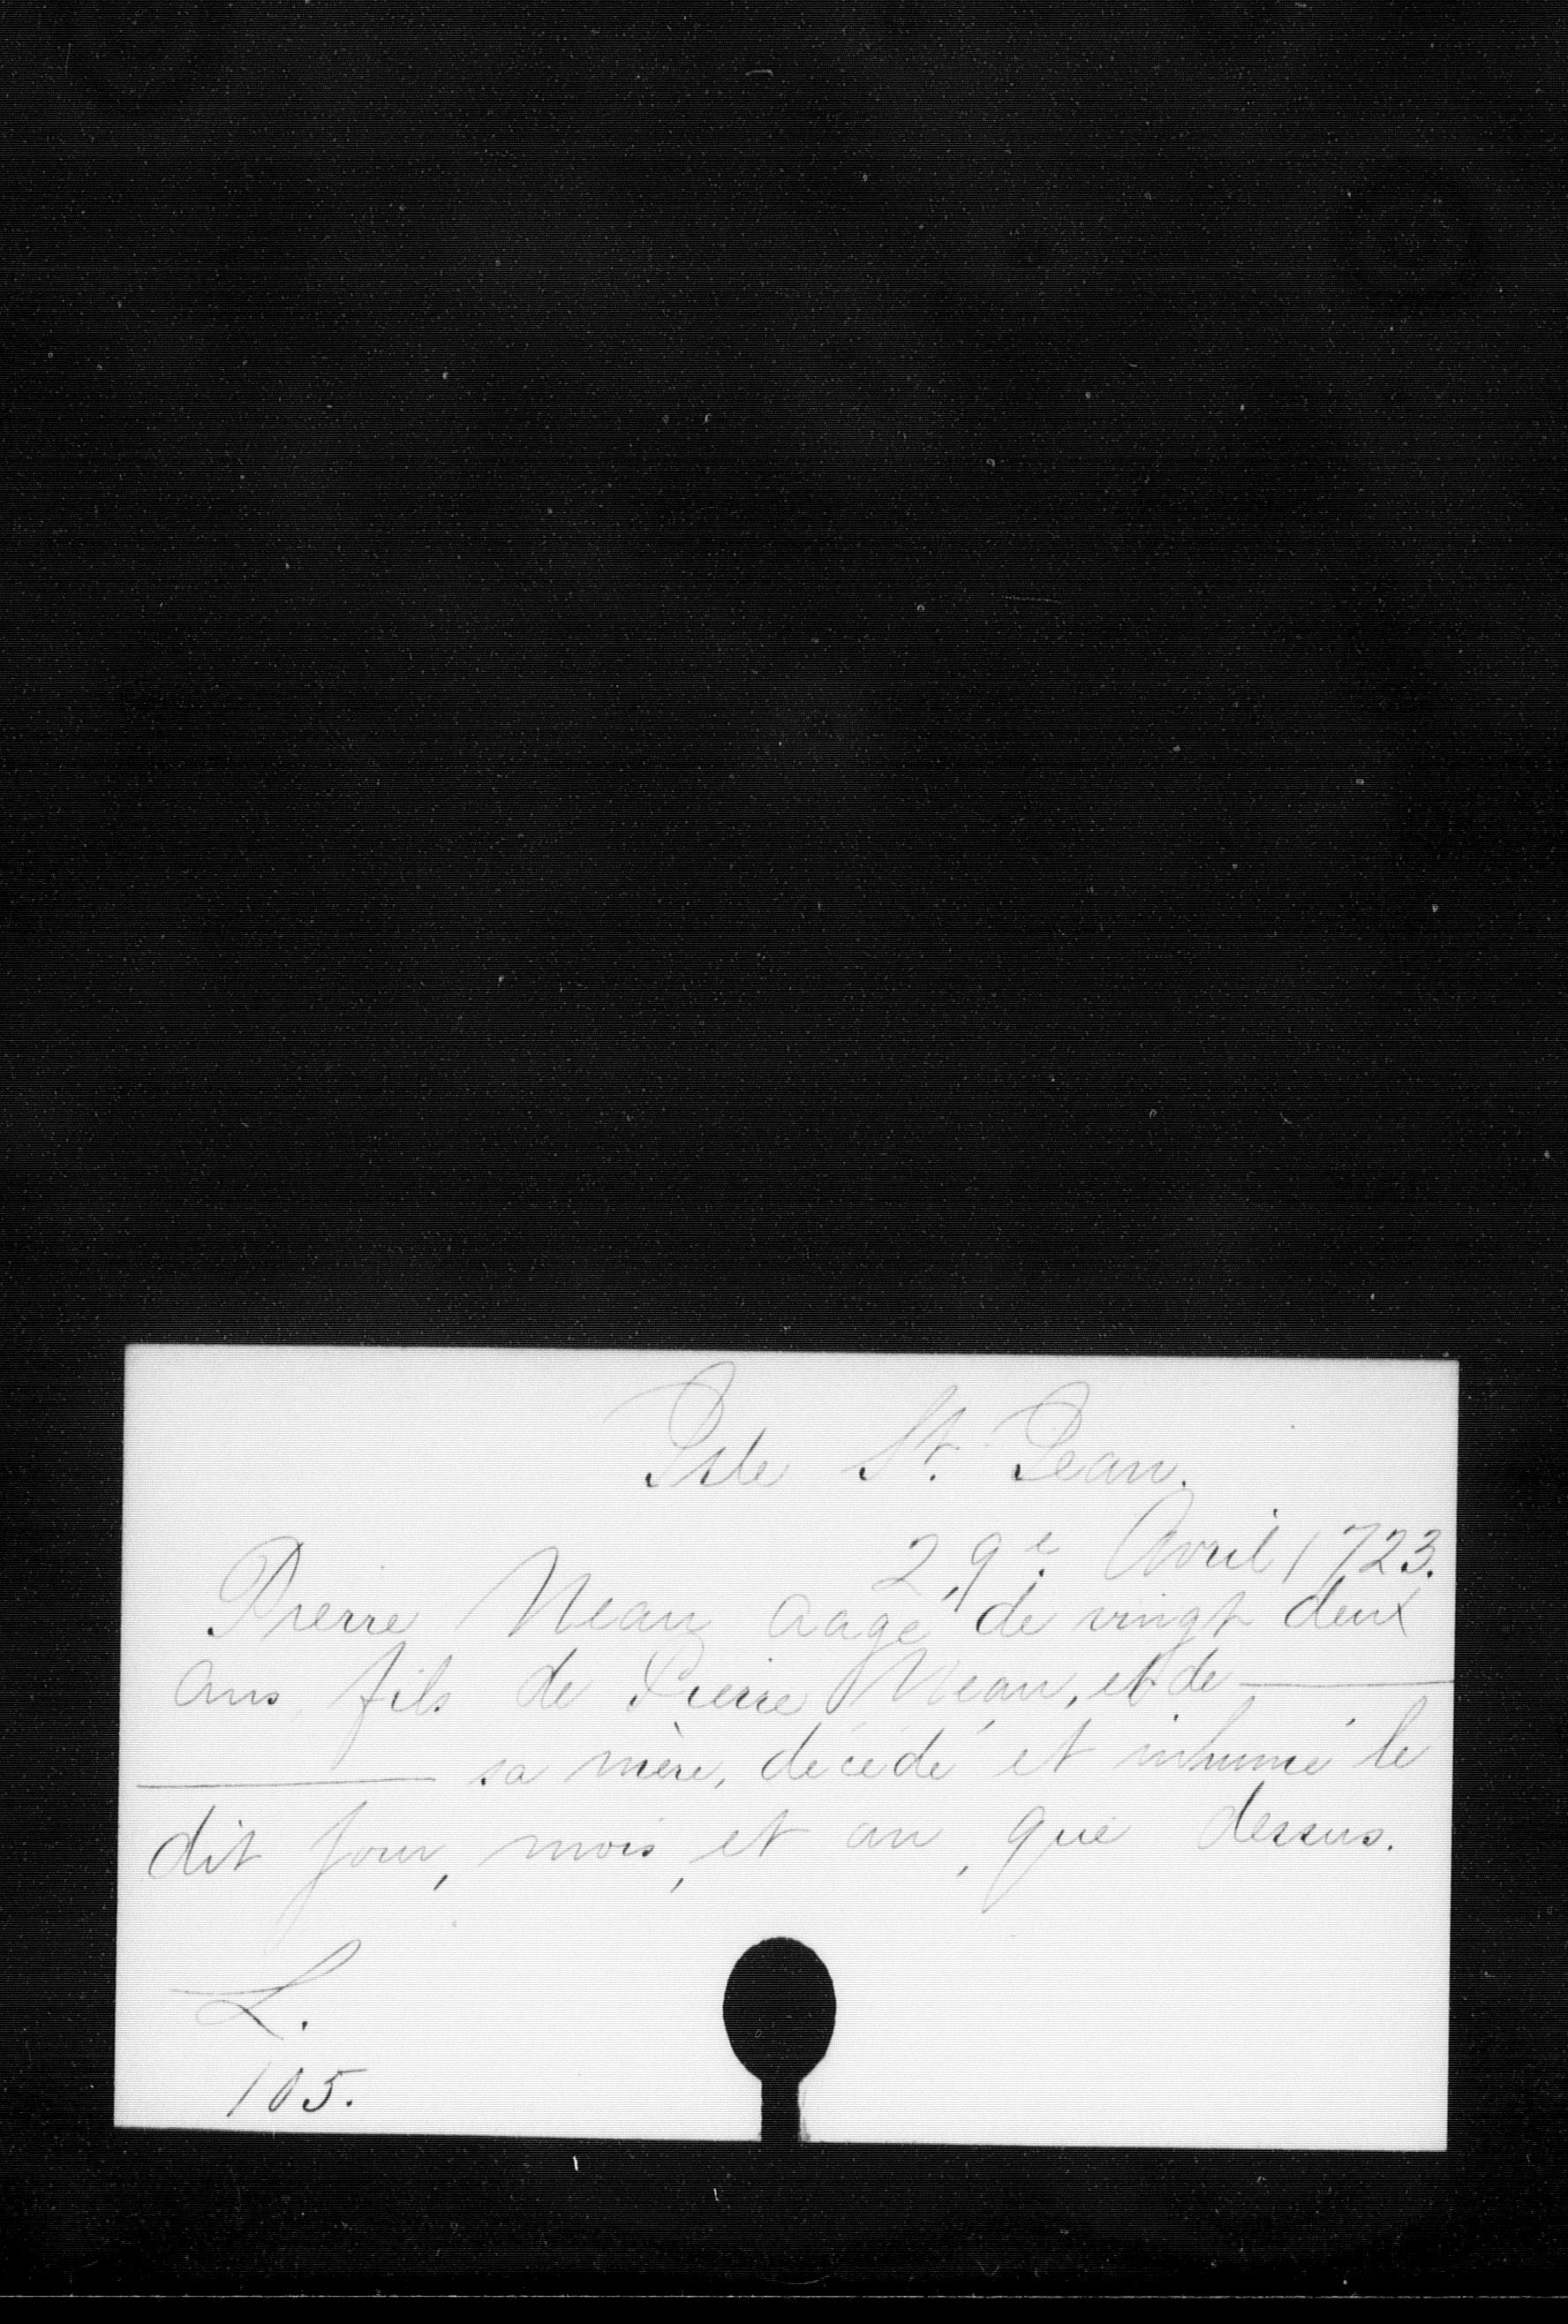 Isle St. Jean.
29e Avril 1723.
Pierre Neau aagé de vingt deux
ans, fils de Pierre Neau, et de ———
——— sa mère, décédé et inhumé le
dit jour, mois, et an, que dessus.
L.
105.